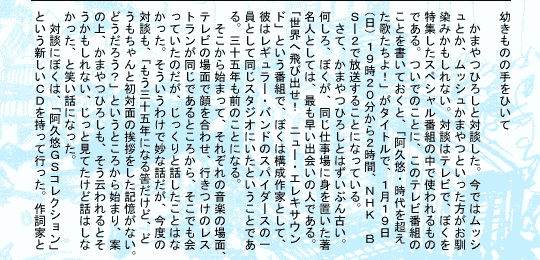 幼きものの手をひいて
　かまやつひろしと対談した。今ではムッシ
ュとか、ムッシュかまやつといった方がお馴
染みかもしれない。対談はテレビで、ぼくを
特集したスペシャル番組の中で使われるもの
である。ついでのことに、このテレビ番組の
ことを書いておくと、「阿久悠・時代を超え
た歌たちよ！」がタイトルで、１月１９日
（日）１９時２０分から２時間、ＮＨＫ　Ｂ
Ｓ―２で放送することになっている。
　さて、かまやつひろしとはずいぶん古い。
何しろ、ぼくが、同じ仕事場に身を置いた著
名人としては、最も早い出会いの人である。
「世界へ飛び出せ！　ニュー・エレキサウン
ド」という番組で、ぼくは構成作家として、
彼はレギュラー・バンドのスパイダースの一
員として同じスタジオにいたということであ
る。三十五年も前のことになる。
　そこから始まって、それぞれの音楽の場面、
テレビの場面で顔を合わせ、行きつけのレス
トランが同じであるところから、そこでも会
っていたのだが、じっくりと話したことはな
かった。そういうわけで妙な話だが、今度の
対談も、「もう三十五年になる筈だけど、ど
うもちゃんと初対面の挨拶をした記憶がない。
どうだろう？」というところから始まり、案
の上、かまやつひろしも、そう云われるとそ
うかもしれない、じっと見てたけど話はしな
かった、と笑い話になった。
　対談にぼくは、「阿久悠ＧＳコレクション」
という新しいＣＤを持って行った。作詞家と